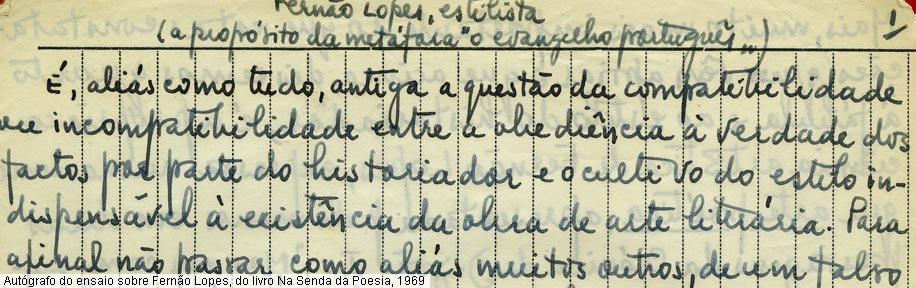 Fernão Lopes, estilista
(a propósito da metáfora "o evangelho português...) 1
É, aliás como tudo, antiga a questão da compatibilidade
ou incompatibilidade entre a obediência à verdade dos
factos por parte do historiador e o cultivo do estilo in-
dispensável à existência da obra de arte literária. Para
afinal não passar como aliás muitos outros, de um falso
Autógrafo do ensaio sobre Fernão Lopes, do livro Na Senda da Poesia, 1969